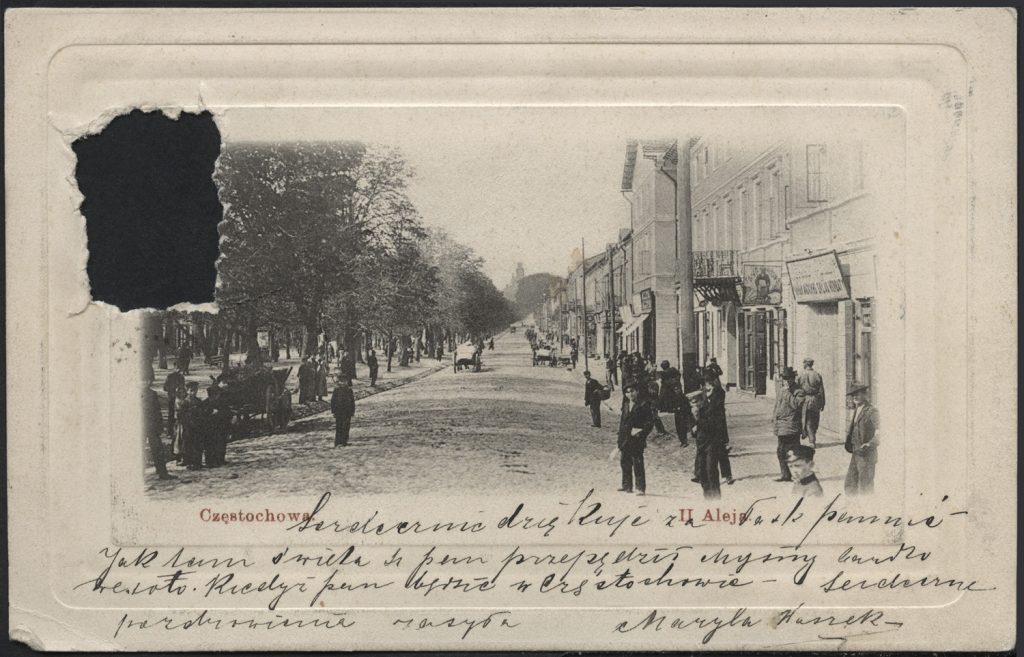 Częstochowa.
II Aleja.
Serdecznie dziękuję za pamięć
Jak tam święta pan przepędził myśmy bardzo
wesoło. Kiedyż pan będzie w Częstochowie – Serdeczne
pozdrowienia zasyła Maryla